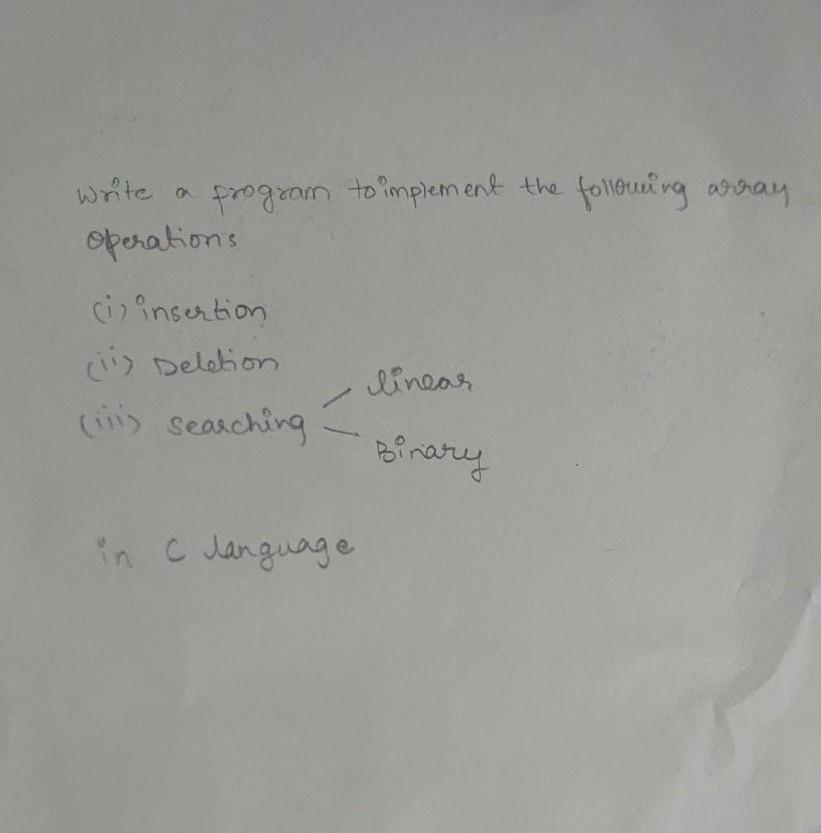 write a program to implement the following array
operations
(i) insertion
(ii) Deletion
(iii) searching linear
Binary
in C language